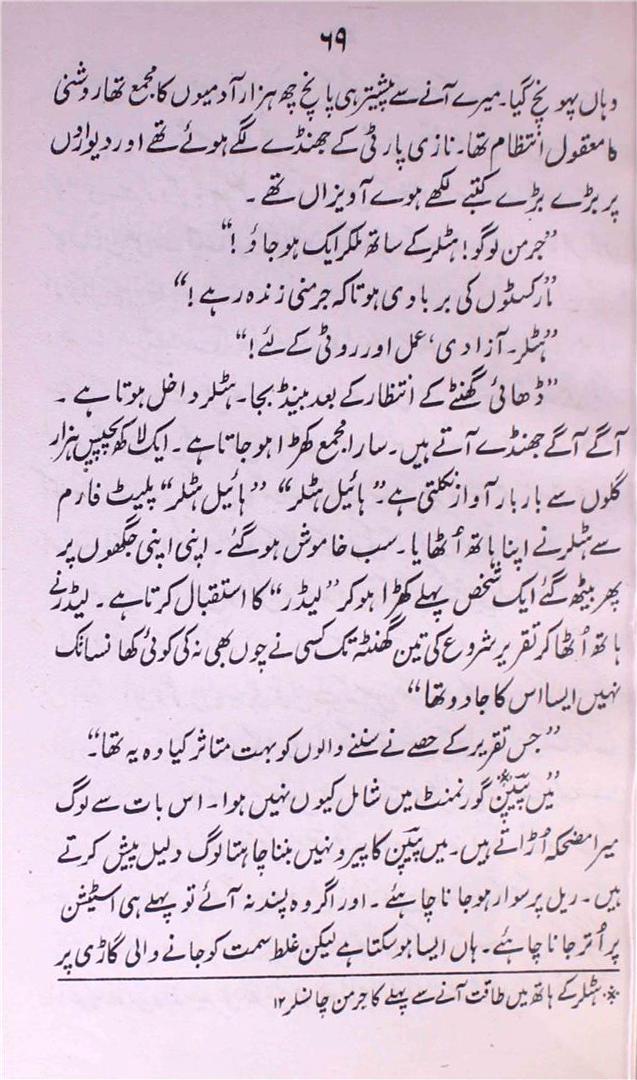 ۶۹
وہاں پہونچ گیا۔ میرے آنے سے پیشتر ہی پانچ چھ ہزار آدمیوں کا مجمع تھا روشنی
کا معقول انتظام تھا۔ نازی پارٹی کے جھنڈے لگے ہوئے تھے اور دیواروں
پر بڑے بڑے کتبے لکھے ہوے آویزاں تھے۔
”جرمن لوگو! ہٹلر کے ساتھ ملکر ایک ہو جاؤ!“
”مارکسٹوں کی بربادی ہو تاکہ جرمنی زندہ رہے!“
”ہٹلر۔ آزادی، عمل اور روٹی کے لئے!“
”ڈھائی گھنٹے کے انتظار کے بعد بینڈ بجا۔ ہٹلر داخل ہوتا ہے۔
آگے آگے جھنڈے آتے ہیں۔ سارا مجمع کھڑا ہو جاتا ہے۔ ایک لاکھ پچیس ہزار
گلوں سے بار بار آواز نکلتی ہے ”ہائیل ہٹلر“ ”ہائیل ہٹلر“ پلیٹ فارم
سے ہٹلر نے اپنا ہاتھ اُٹھایا۔ سب خاموش ہو گئے۔ اپنی اپنی جگھوں پر
پھر بیٹھ گئے ایک شخص پہلے کھڑا ہو کر ”لیڈر“ کا استقبال کرتا ہے۔ لیڈر نے
ہاتھ اُٹھا کر تقریر شروع کی تین گھنٹہ تک کسی نے چوں بھی نہ کی کوئی کھانسا تک
نہیں ایسا اس کا جادو تھا“
”جس تقریر کے حصے نے سننے والوں کو بہت متاثر کیا وہ یہ تھا“۔
”میں پیپن* گورنمنٹ میں شامل کیوں نہیں ہوا۔ اس بات سے لوگ
میرا مضحکہ اُڑاتے ہیں۔ میں پیپن کا پیرو نہیں بننا چاہتا لوگ دلیل پیش کرتے
ہیں۔ ریل پر سوار ہو جانا چاہئے۔ اور اگر وہ پسند نہ آئے تو پہلے ہی اسٹیشن
پر اُتر جانا چاہئے۔ ہاں ایسا ہو سکتا ہے لیکن غلط سمت کو جانے والی گاڑی پر
* ہٹلر کے ہاتھ میں طاقت آنے سے پہلے کا جرمن چانسلر ۱۲